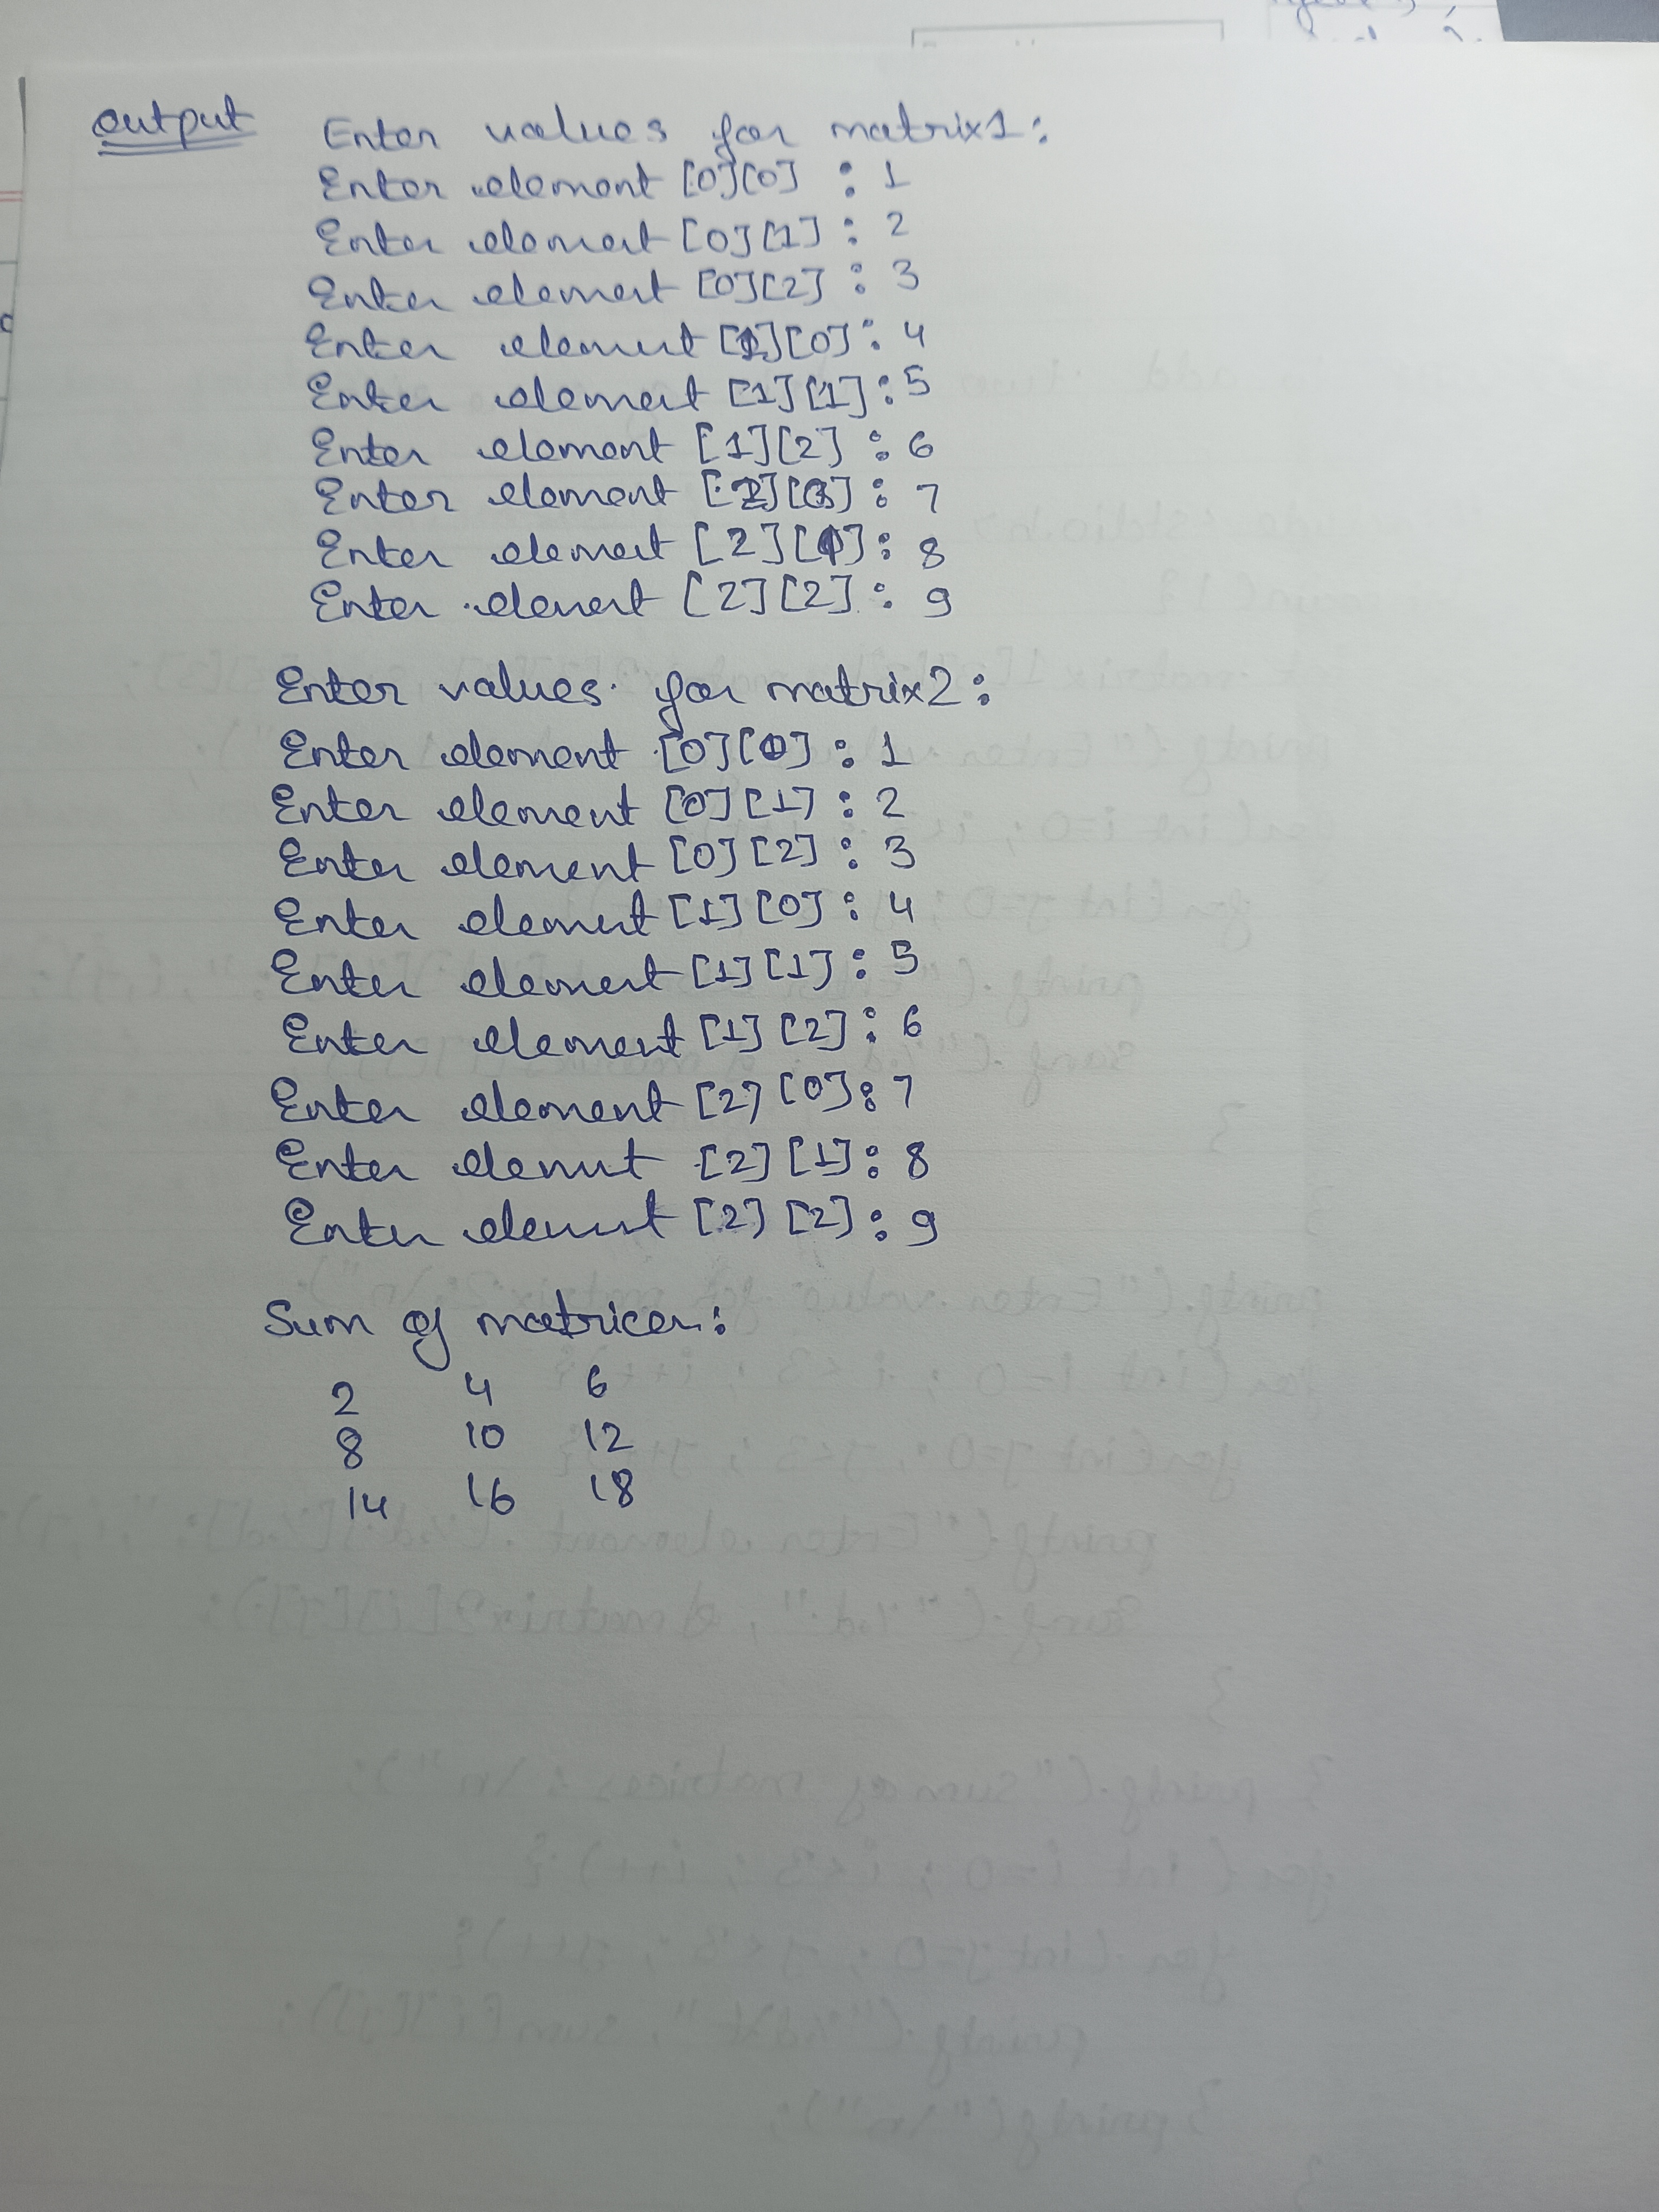 output Enter values for matrix1:
Enter element [0][0] : 1
Enter element [0][1] : 2
Enter element [0][2] : 3
Enter element [1][0] : 4
Enter element [1][1] : 5
Enter element [1][2] : 6
Enter element [2][0] : 7
Enter element [2][1] : 8
Enter element [2][2] : 9
Enter values for matrix2:
Enter element [0][0] : 1
Enter element [0][1] : 2
Enter element [0][2] : 3
Enter element [1][0] : 4
Enter element [1][1] : 5
Enter element [1][2] : 6
Enter element [2][0] : 7
Enter element [2][1] : 8
Enter element [2][2] : 9
Sum of matrices:
2 4 6
8 10 12
14 16 18